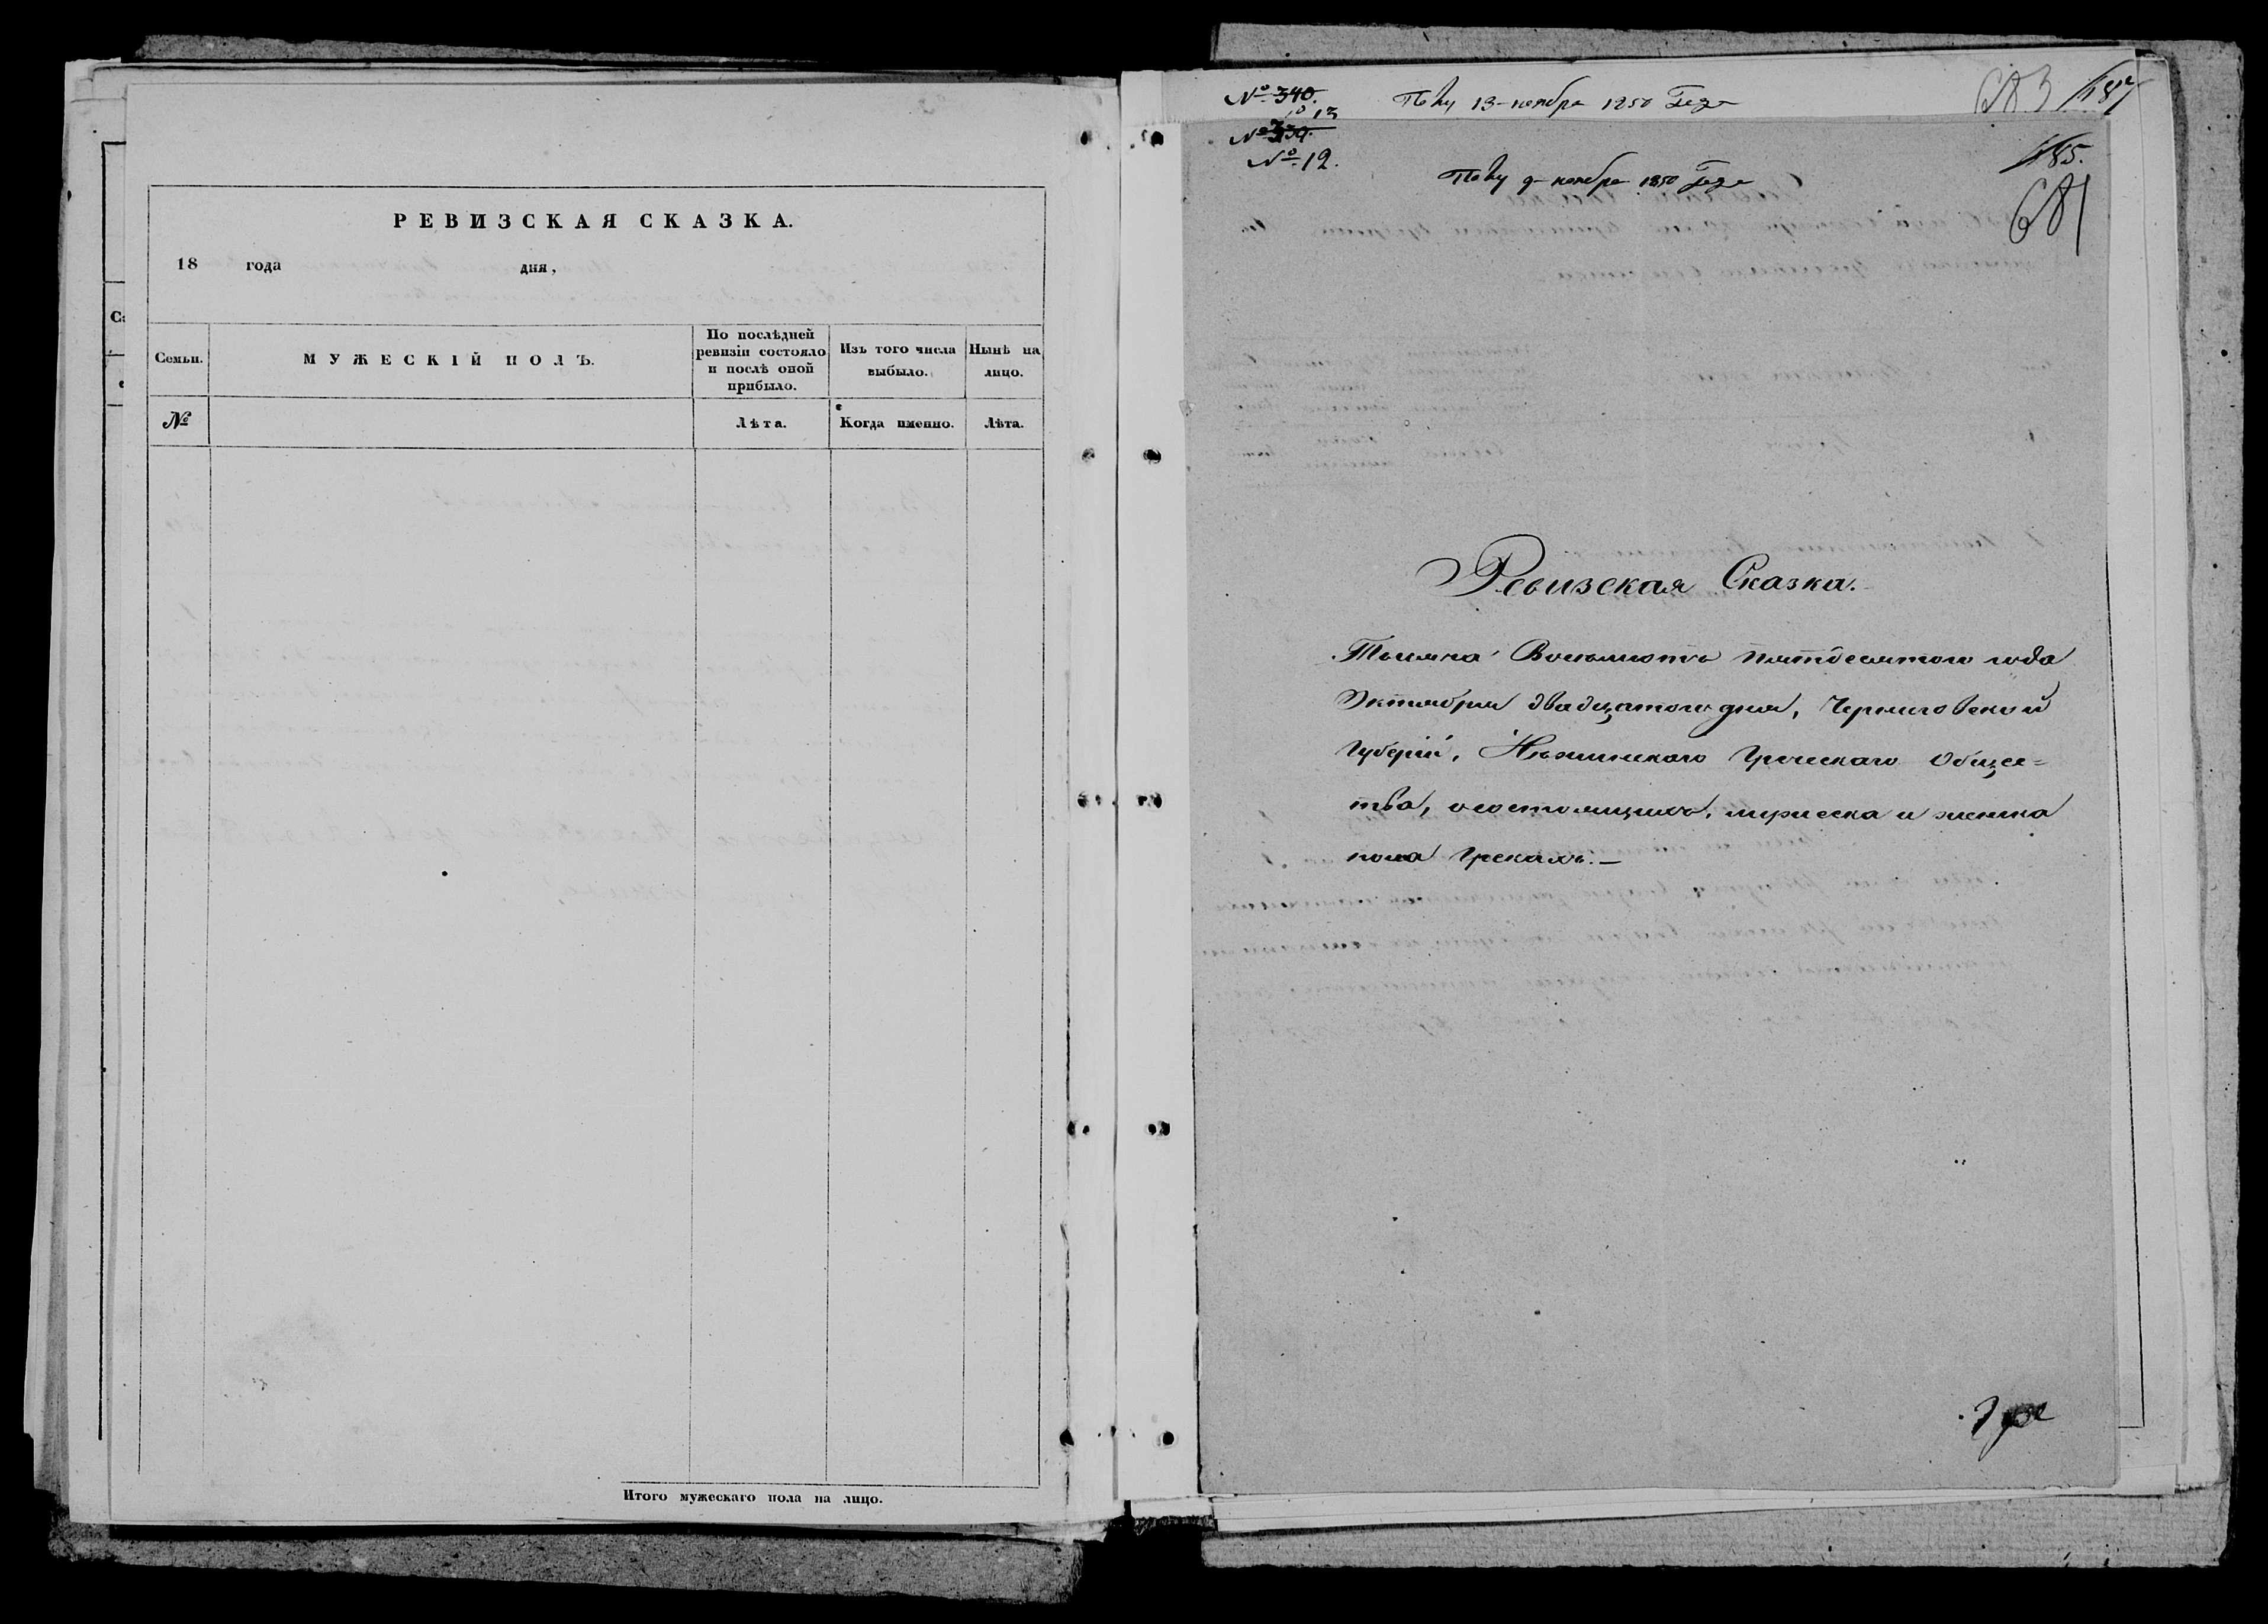 РЕВИЗСКАЯ СКАЗКА.
18 года дня,
Семьи.
МУЖЕСКІЙ ПОЛЪ.
По послѣдней ревизіи состояло и послѣ оной прибыло.
Изъ того числа выбыло.
Нынѣ на лицо.
№
Лѣта.
Когда именно.
Лѣта.
Итого мужескаго пола на лицо.
№ 340.
13
13 ноября 1850 Года
683
187
№ 339.
№. 12.
9 ноября 1850 Года
185.
681
Ревизская Сказка.
Тысяча Восемьсотъ пятдесятого года
Октября двадцатого дня, Черниговской
Губерніи, Нѣжинского Греческаго Общес=
тва, о состоящихъ, мужеска и женска
пола Грекахъ.—